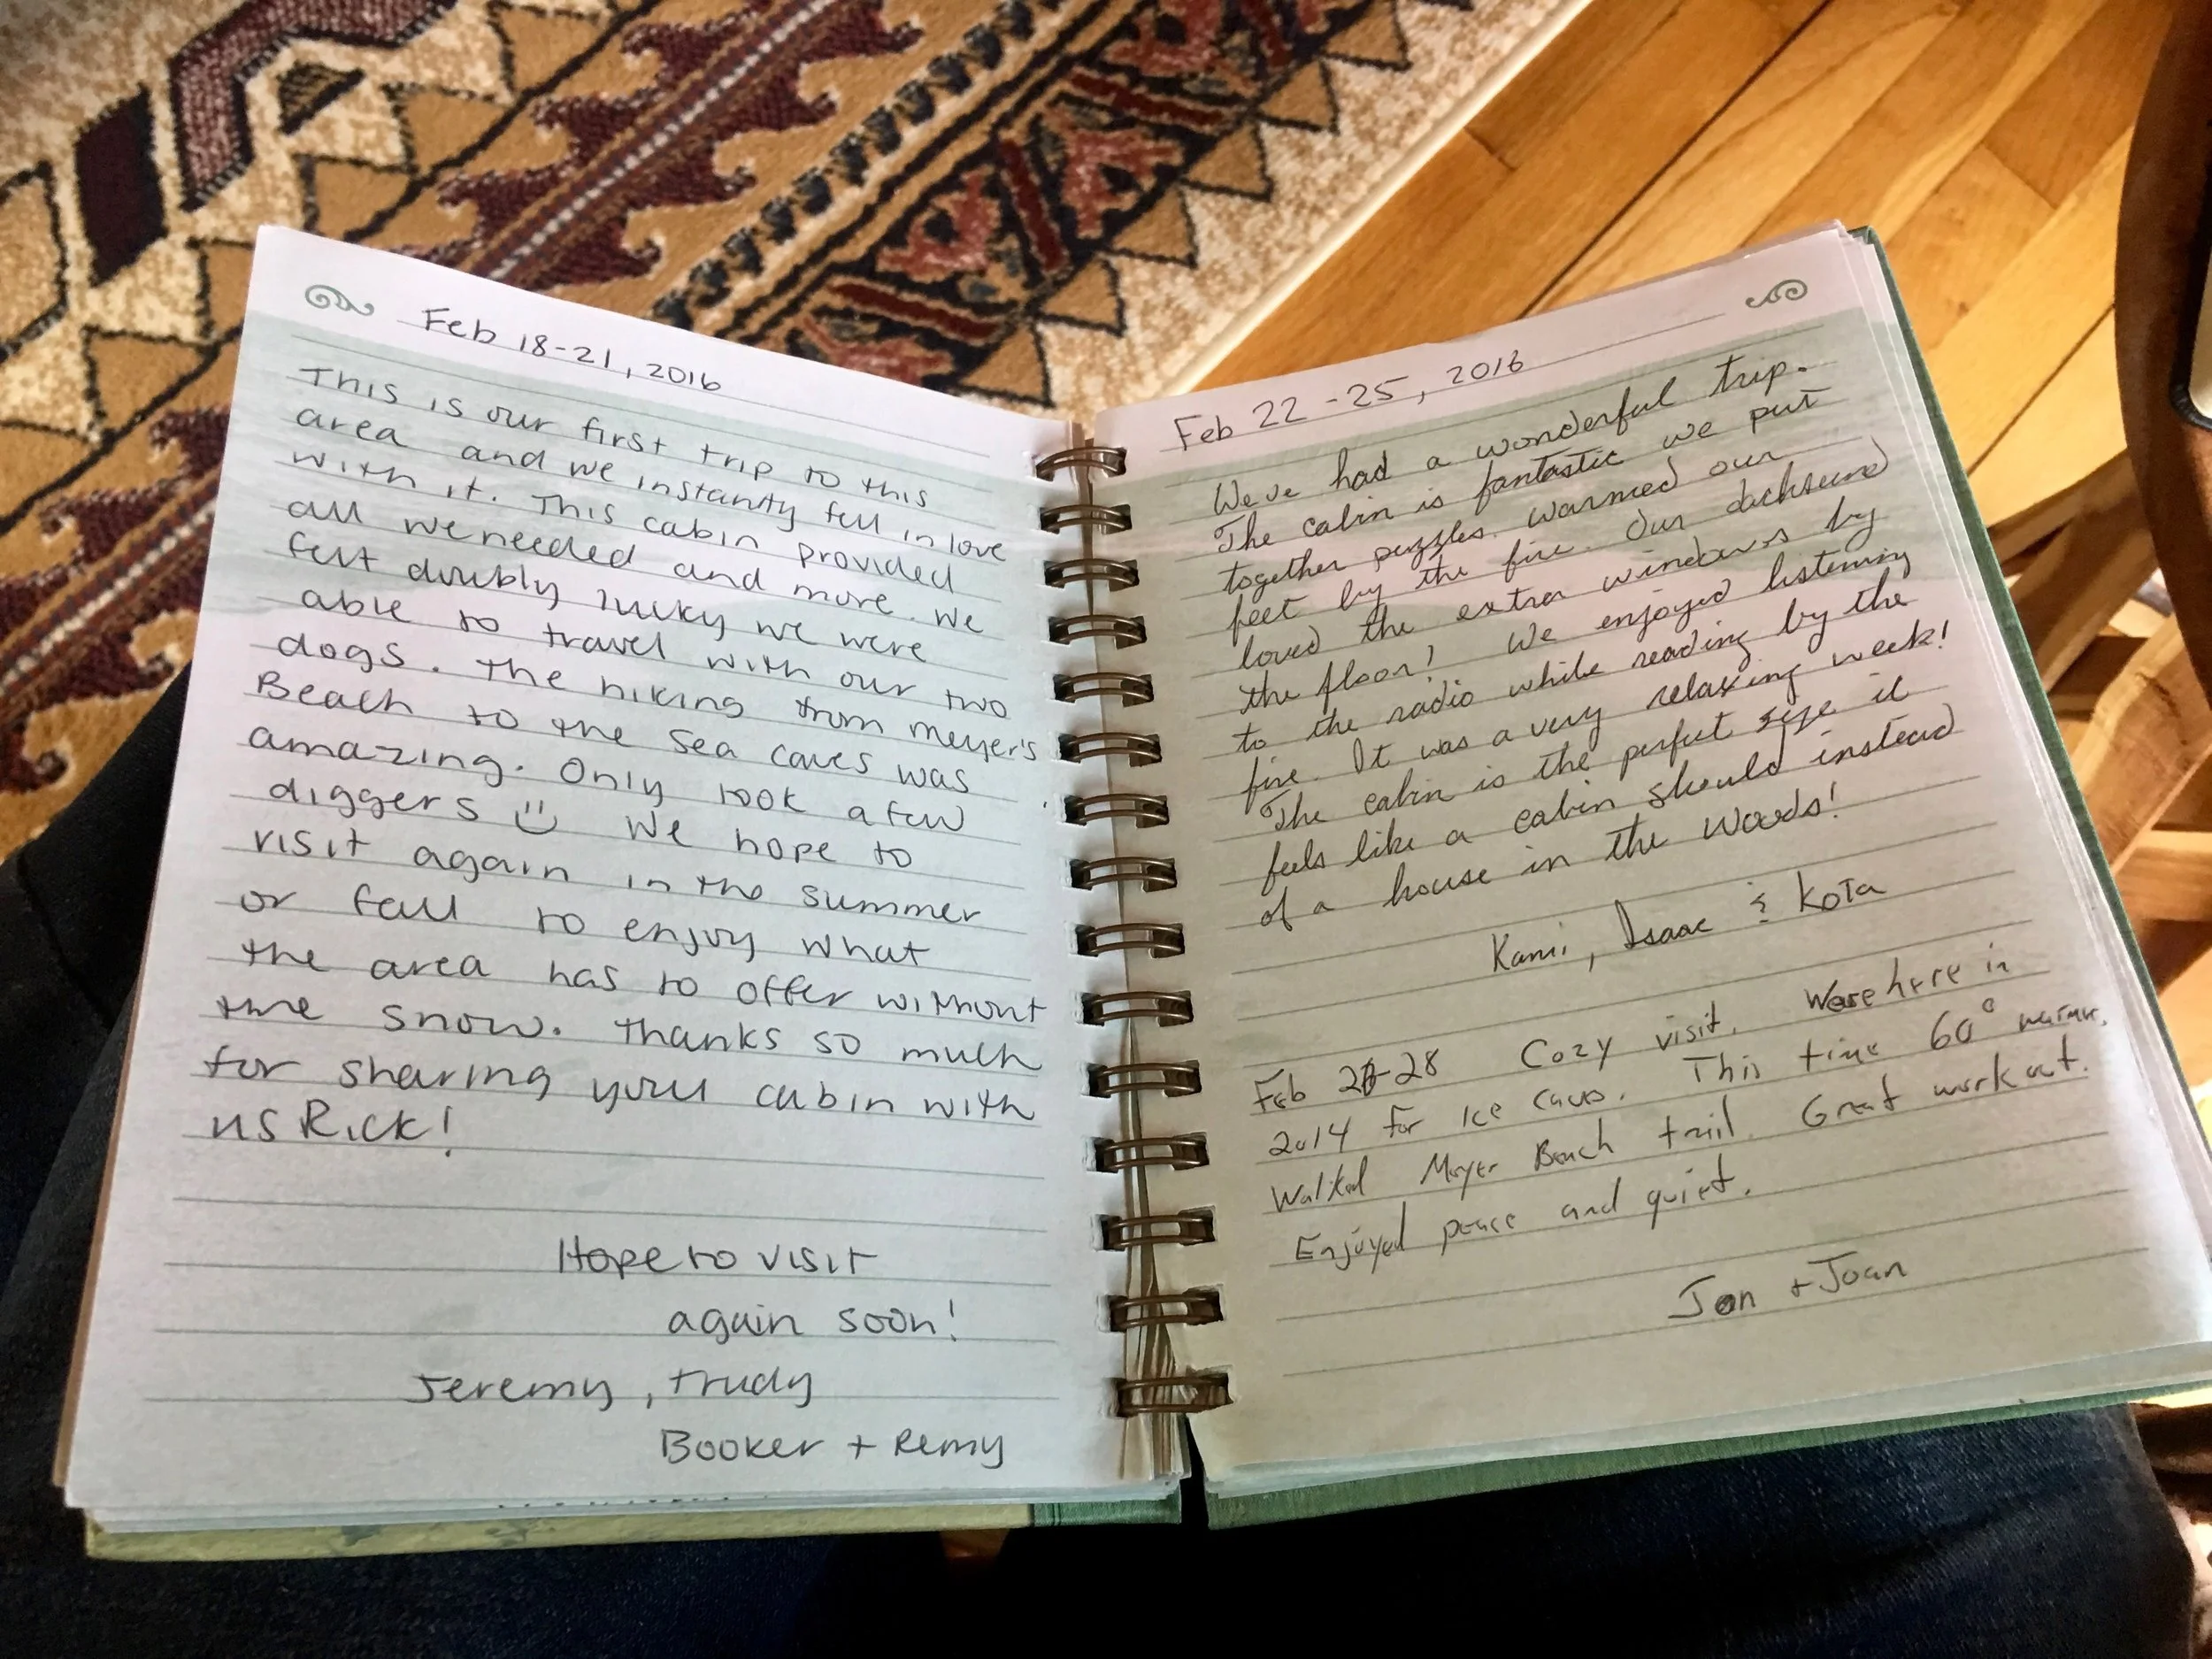 Feb 18-21, 2016
This is our first trip to this
area and we instantly fell in love
with it. This cabin provided
all we needed and more. We
felt doubly lucky we were
able to travel with our two
dogs. The hiking from Meyer's
Beach to the sea caves was
amazing. Only took a few
diggers We hope to
visit again in the summer
or fall to enjoy what
the area has to offer without
the snow. Thanks so much
for sharing your cabin with
us Rick!
Hope to visit
again soon!
Jeremy, Trudy
Booker + Remy
Feb 22-25, 2016
We've had a wonderful trip.
The cabin is fantastic we put
together puzzles warmed our
feet by the fire. Our dachsund
loved the extra windows by
the floor! We enjoyed listening
to the radio while reading by the
fire. It was a very relaxing week!
The cabin is the perfect size it
feels like a cabin should instead
of a house in the woods!
Kami, Isaac & Kota
Feb 28 Cozy visit. Were here in
2014 for Ice caves. This time 60° warmer.
Walked Meyer Beach trail. Great workout.
Enjoyed peace and quiet.
Jon + Joan